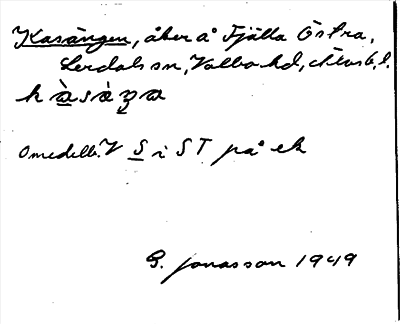 Kasängen, åker å Fjälla Östra,
Lerdals sn, Valbo hd, Älvsb. l.
Omedelb. V S i ST på ek
G. Jonasson 1949